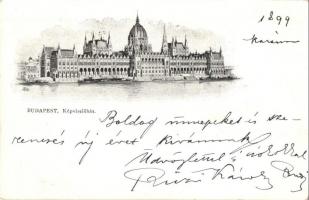 1899
BUDAPEST, Képviselőház.
Boldog ünnepeket és sze-
rencsés új évet kívánunk
Üdvözlettel
Károly